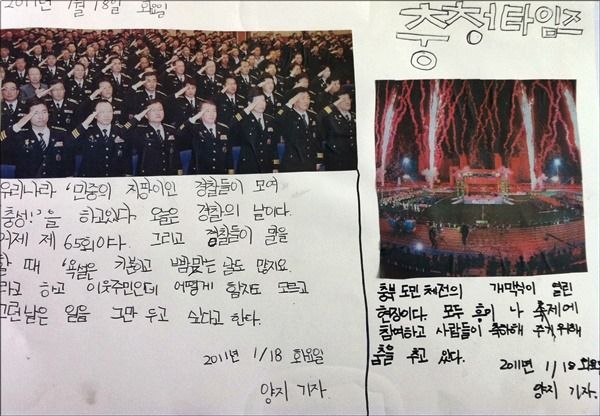 2011년 1월 18일 화요일
우리나라 '민중의 지팡이인 경찰들이 모여
충성!'을 하고있다 오늘은 경찰의 날이다.
어제 제 65회이다. 그리고 경찰들이 일을
할 때 '욕설은 기본이고 뺨맞는 날도 많지요.
라고 하고 이웃주민인데 어떻게 할지도 모르고
그런날은 일을 그만 두고 싶다고 한다.
2011년 1/18 화요일
양지 기자.
충청타임즈
충북 도민 체전의 개막식이 열린
현장이다. 모두 흥이 나 축제에
참여하고 사람들이 축하해 주기 위해
춤을 추고 있다.
2011년 1/18 화요일
양지 기자.